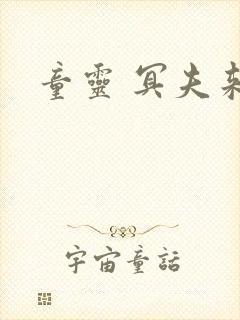 童靈冥夫
宇宙童話